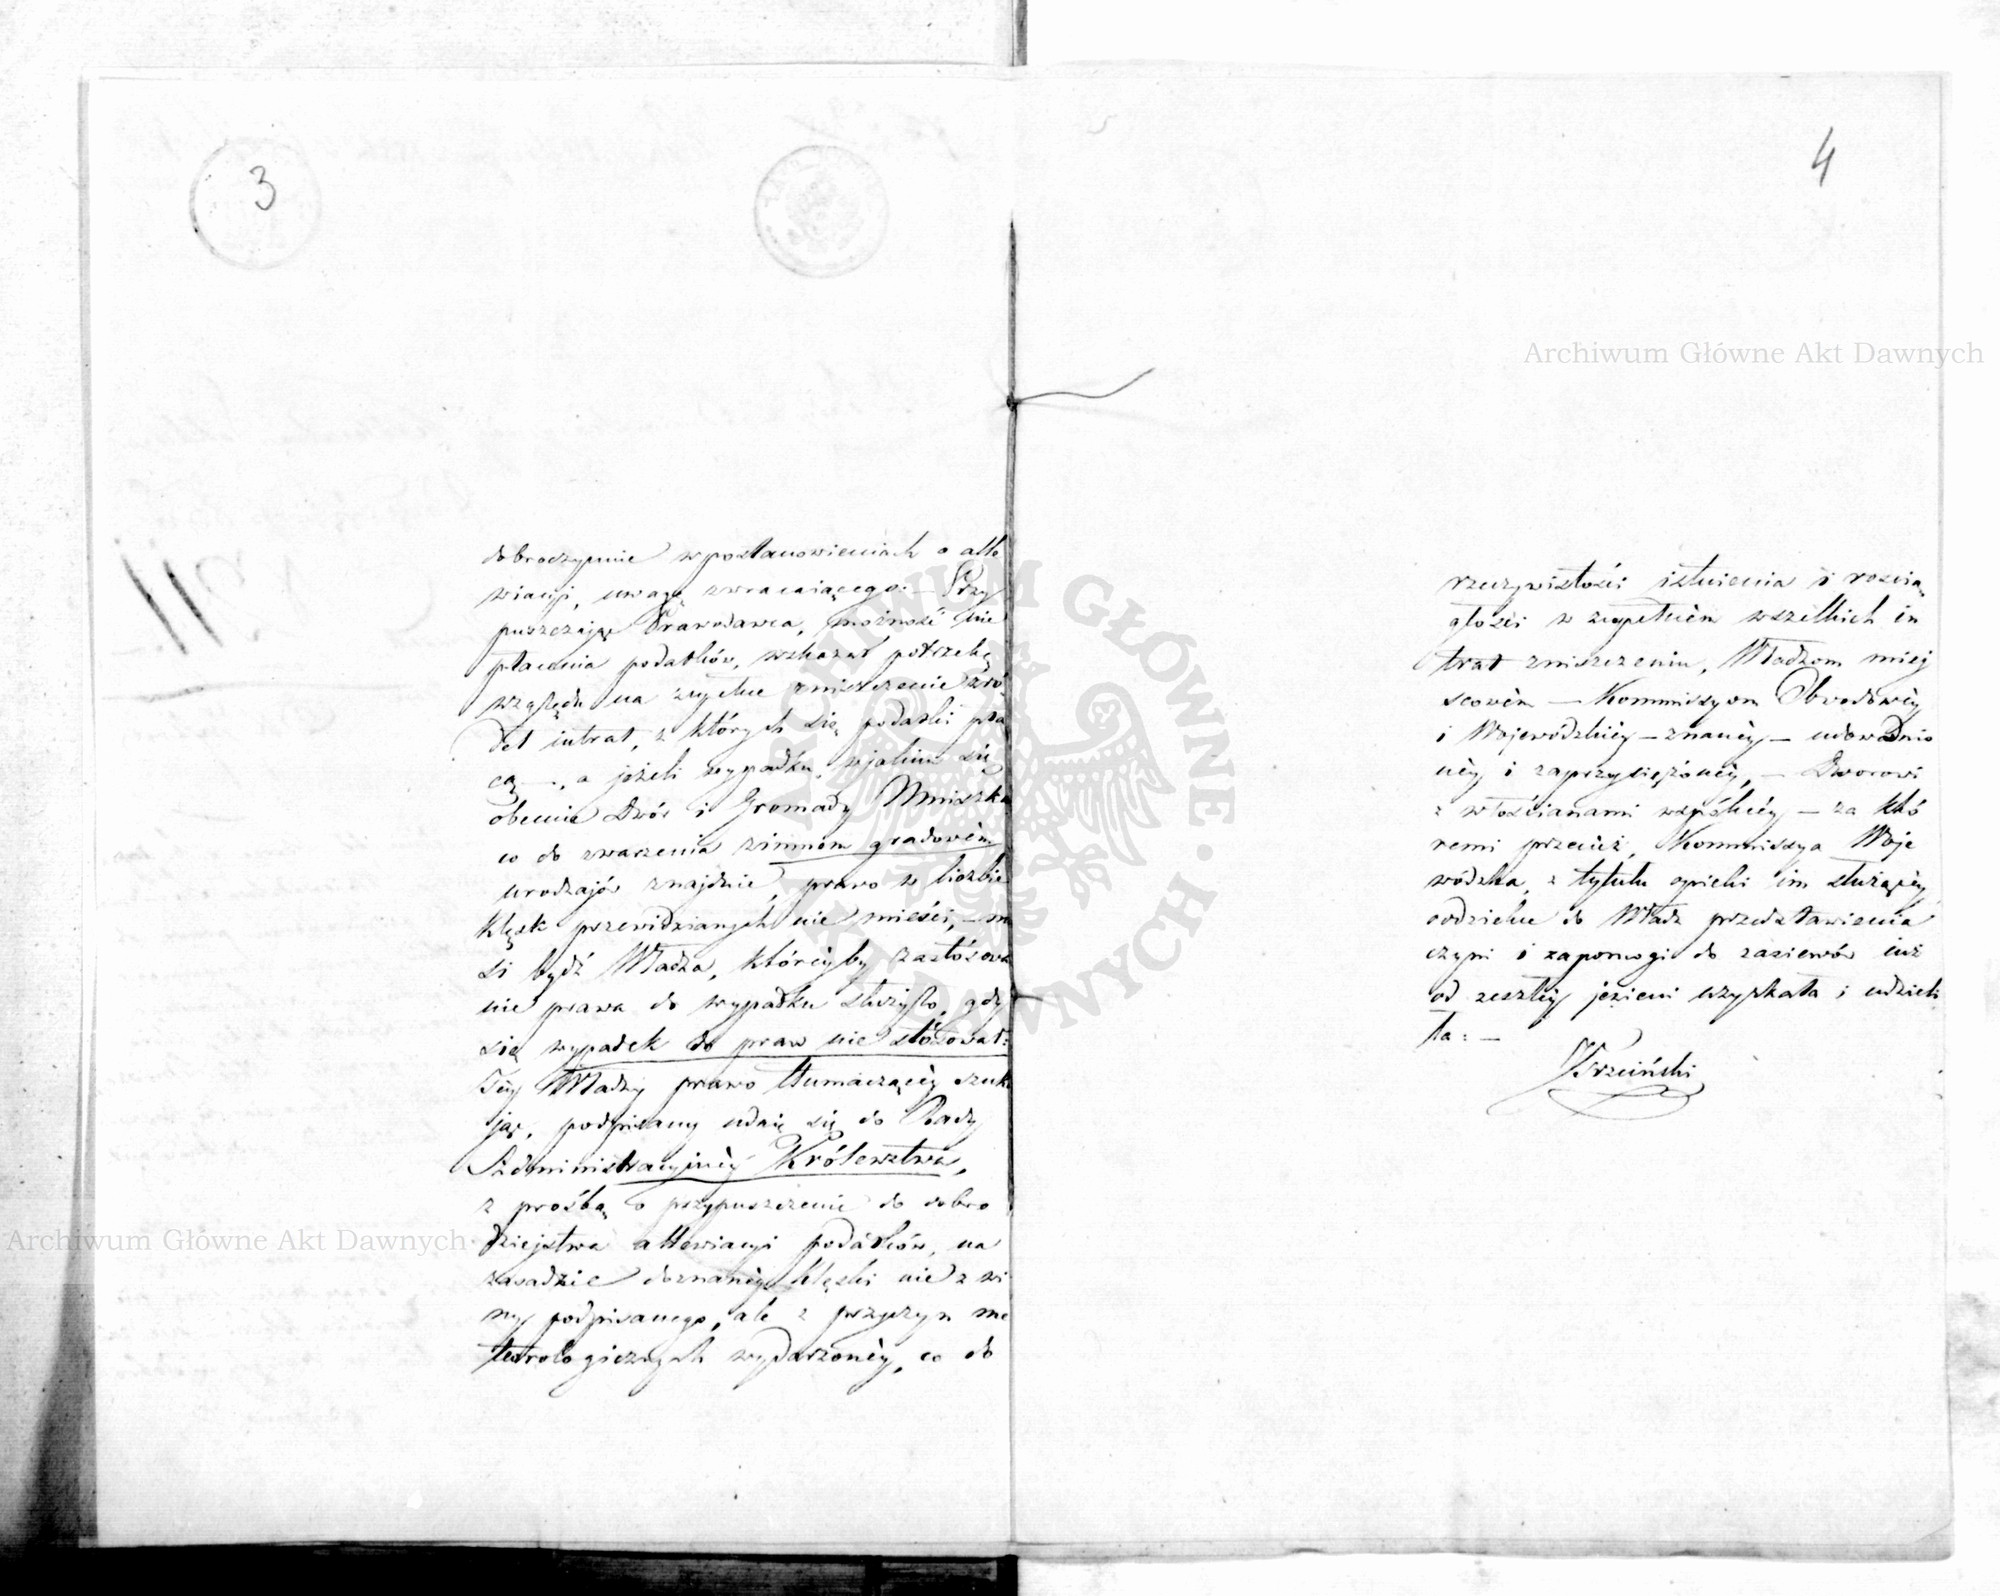 3
dobroczynnie w postanowieniach o alle
wiacyi, uwagę zwracaiącego: — Przy
puszczając Prawodawca, możność nie
płacenia podatków, wskazał potrzebę
względu na zupełne zniszczenie źró
deł intrat, z których się podatki pła
cą —, a jeżeli wypadku, w jakim się
obecnie Dwór i Gromady Mniszka
co do zwarzenia zimnem gradowém
urodzajów znajdnie, prawo w liczbie
klęsk przewidzianych nie mieści, — mu
si bydź Władza, któréyby zastósowa
nie prawa do wypadku służyło, gdy
się wypadek do praw nie stósował:
Téy Władzy prawo tłumaczącéy szuka
jąc, podpisany udaie się do Rady
Administracyjnéy Królewstwa,
z prośbą o przypuszczenie do dobro
dziejstwa allewiacyi podatków, na
zasadzie doznanéy klęski nie z wi
ny podpisanego, ale z przyczyn me
teorologicznych wydarzonéy, co do
4
rzeczywistości istnienia i rosciąg
głości w zupełném wszelkich in
trat zniszczeniu, Władzom miey
scowém — Kommissyom Obwodowéy
i Wojewódzkiéy — znanéy — udowodnio
néy i zaprzysiężonéy, — Dworowi
z włościanami wspólnéy — za któ
remi przecież, Kommissya Woje
wódzka, z tytułu opieki im służącéy
oddzielne do Władz przedstawienia
czyni i zapomogi do zasiewów iuż
od zeszłéy jesieni uzyskała i udzieli
ła: —
Archiwum Główne Akt Dawnych
Archiwum Główne Akt Dawnych
ARCHIWUM GŁÓWNE AKT DAWNYCH